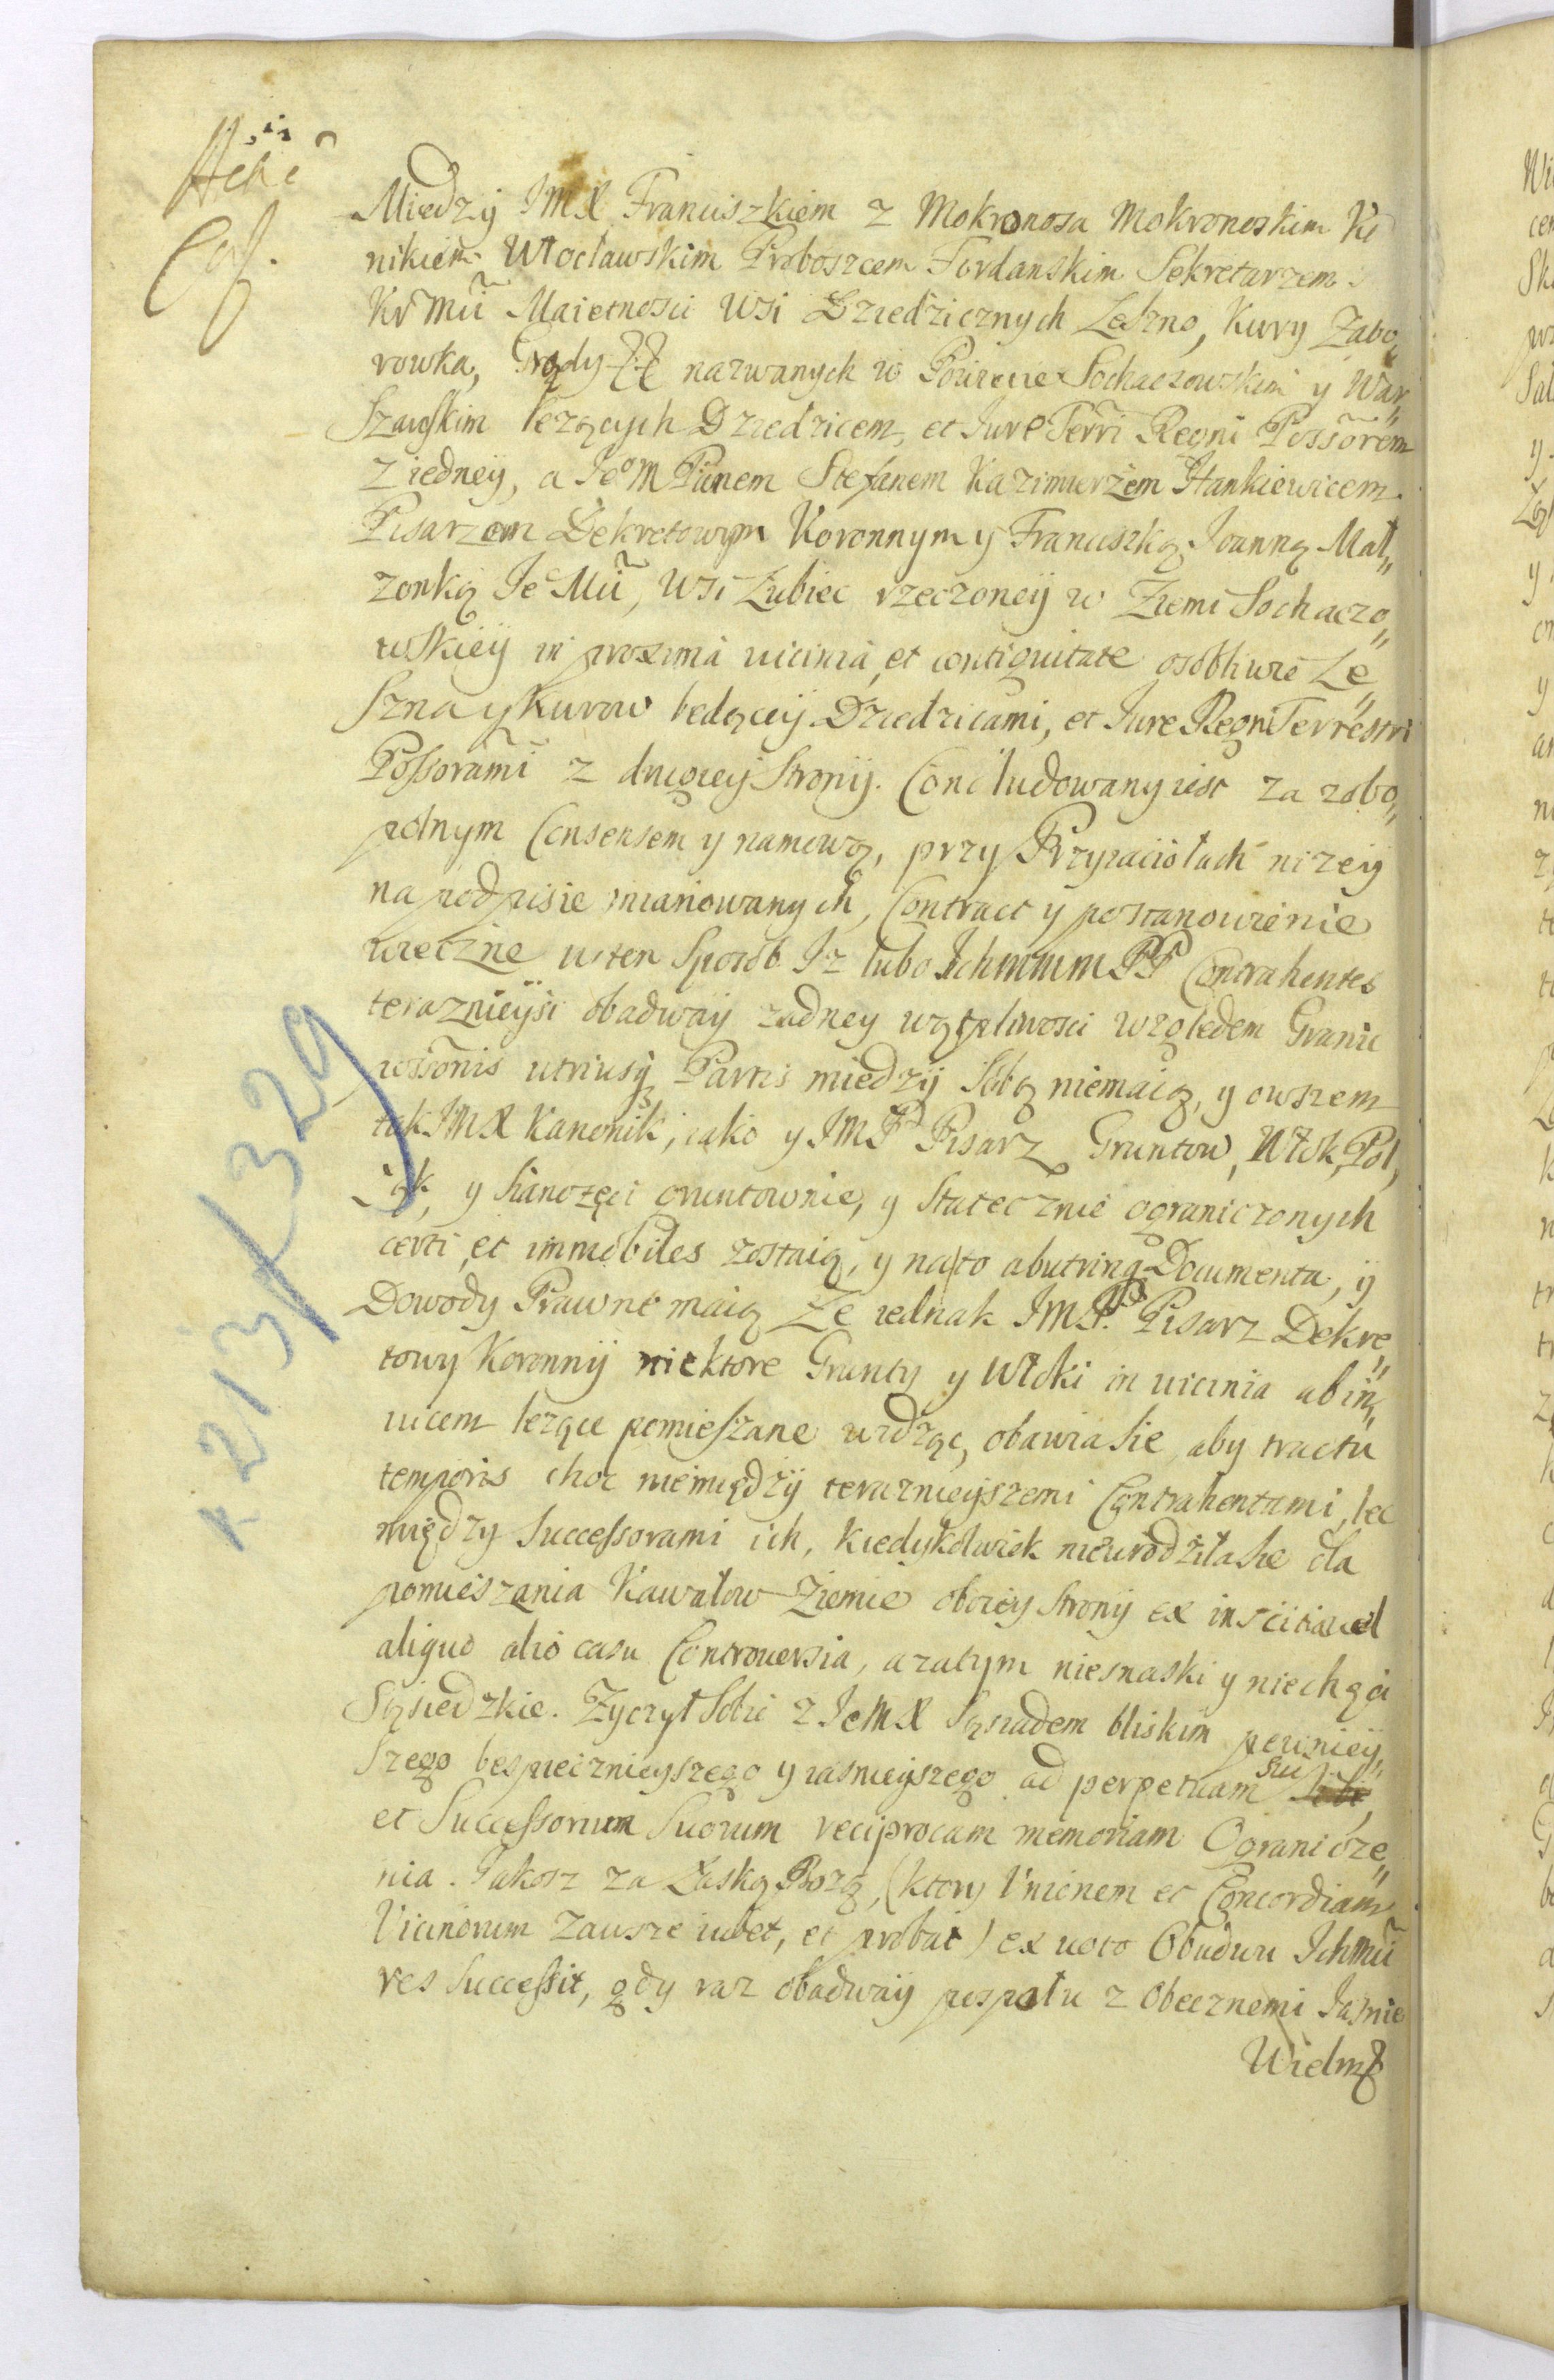 Między JMX Franciszkiem z Mokronosa Mokronoskim Ka
nikiem Włocławskim Proboszcem Fordanskim Sekretarzem J
KrMũ Maiętnosci Wsi Dziedzicznych Leszno, Kury Zabo„
rowka, Grądy nazwanych w Powiecie Sochaczowskim y War„
szawskim lezących Dziedzicem, et Jure Terri Regni Possorem
z iedneÿ, a JeoM Panem Stefanem Kazimierzem Hankiewicem
Pisarzem Dekretowym Koronnym y Franciszką Joanną Mał„
zonką JeMũ, Wsi Łubiec rzeczoneÿ w Ziemi Sochaczo„
wskieÿ in proxima uicinia, et contiguitate osobliwie Le„
szna y Kurow będąceÿ Dziedzicami, et Jure Regni Terrestri
Possorami z drugieÿ Stronÿ. Concludowany iest za zobo„
polnym Consensem y namową, przy Przyiaciołach nizeiÿ
na podpisie mianowanych, Contract y postanowienie
wieczne w ten Sposob Iz lubo Ichmmm PP Contrahentes
teraznieÿsi obadwaÿ zadney wątpliwosci względem Granic
possonis utriusq Partis międzÿ Sobą niemaią, y owszem
tak JMX Kanonik, iako y JMPd Pisarz Gruntow, Włok, Pol,
Łąk, y Sianozęci gruntownie, y Statecznie ograniczonych
certi, et immobiles zostaią, y na to abutrinq Documenta, ÿ
Dowody Prawne maią Ze iednak JMP. Pisarz Dekre„
towy Koronnÿ niektore Grunty y Włoki in uicinia ab in„
uicem lezące pomieszane widząc, obawia sie, aby tractu
temporis choc niemiędzÿ teraznieyszemi Contrahentami, lec
między Successorami ich, kiedykolwiek nieurodziła sie dla
pomieszania Kawałow Ziemie oboiey Stronÿ ex inscitia uel
aliquo alio casu Controuersia, a zatym niesnaski y niechęci
Sąsiedzkie. Zyczył Sobie z JeMX Sąsiadem bliskim pewnieÿ„
szego bespiecznieyszego y iasnieyszego ad perpetuam sui
et Successorum Suorum reciprocam memoriam Ogranicze„
nia. Jakosz za Łaską Bozą, (ktory Vnionem et Concordiam
Vicinorum zawsze iubet, et probat) ex uoto Obudwu Ichmũ
res Successit, gdy raz obadwaÿ pospołu z Obecznemi Jasnie
Wielmẞ
r 213/329